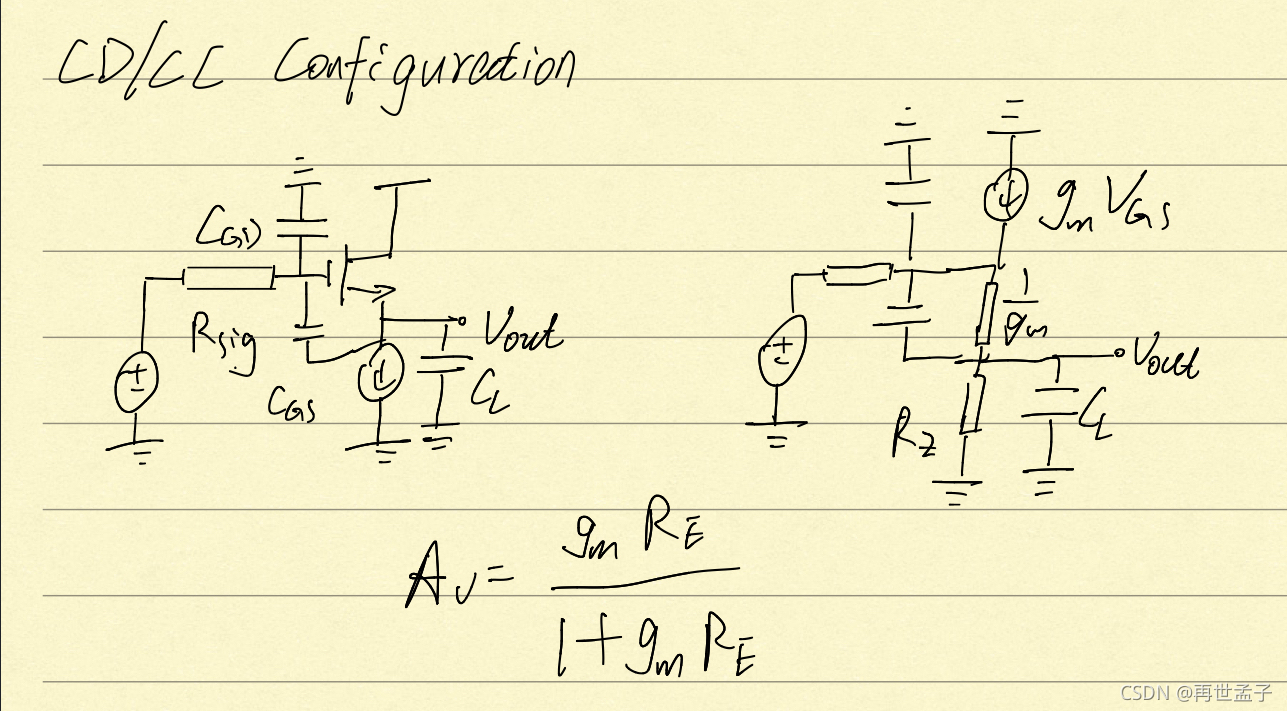 CD/CC Configuration
C_GD
R_sig
C_GS
V_out
C_L
g_m V_GS
1/g_m
V_out
R_2
C_L
A_v = g_m R_E / 1 + g_m R_E
CSDN @再世孟子